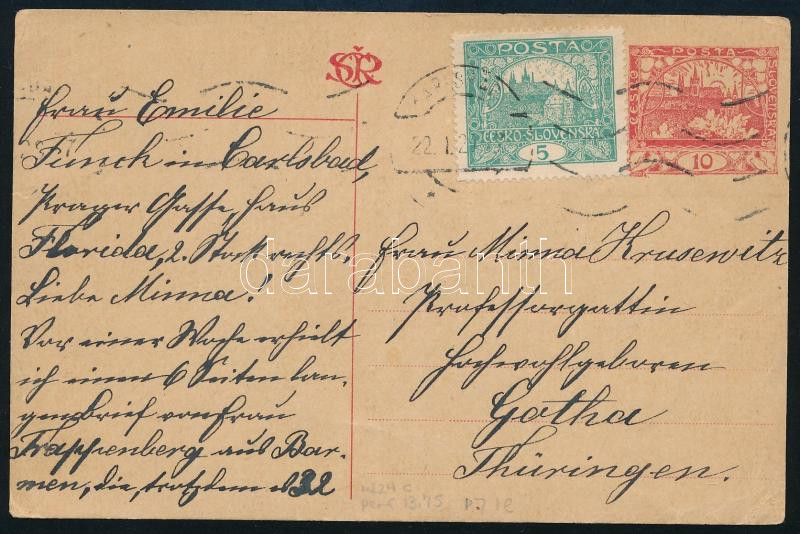 SČR
POSTA
ČESKO-SLOVENSKÁ
5
POSTA
ČESKO SLOVENSKÁ
10
22. I. 2
Frau Emilie
Funck in Carlsbad,
Prager Gasse, Haus
Florida, 2. Stock rechts.
Liebe Minna!
Vor einer Woche erhielt
ich einen 6 Seiten lan-
gen Brief von Frau
aus Bar-
men, die, trotzdem
Frau Minna Krusewitz
Professorgattin
Hochwohlgeboren
Gotha
Thüringen.
darabanth
perf 13.75